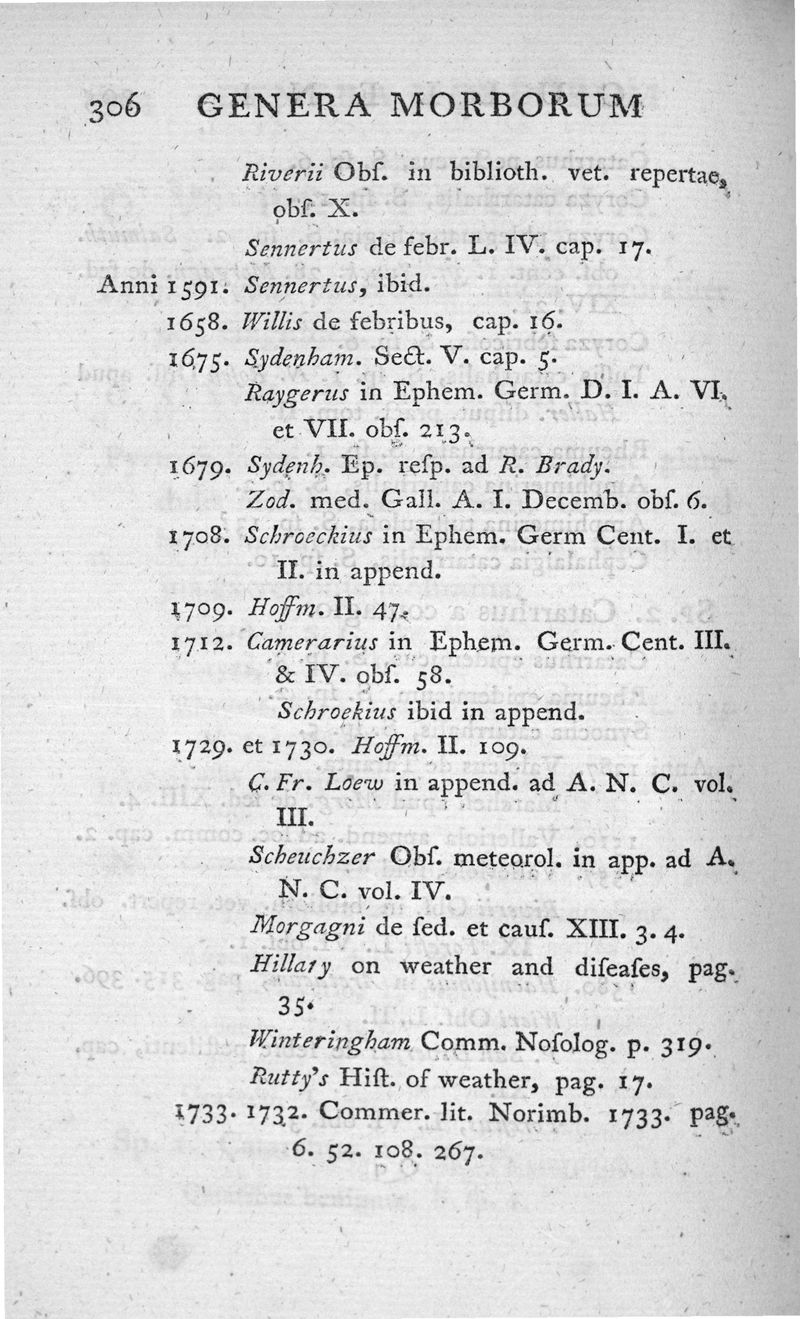 306 GENERA MORBORUM
Riverii Obſ. in biblioth. vet. repertae,
obſ. X.
Sennertus de febr. L. IV. cap. 17.
Anni 1591. Sennertus, ibid.
1658. Willis de febribus, cap. 16.
1675. Sydenham. Sect. V. cap. 5.
Raygerus in Ephem. Germ. D. I. A. VI.
et VII. obſ. 213.
1679. Sydenh. Ep. reſp. ad R. Brady.
Zod. med. Gall. A. I. Decemb. obſ. 6.
1708. Schroeckius in Ephem. Germ Cent. I. et
II. in append.
1709. Hoffm. II. 47.
1712. Camerarius in Ephem. Germ. Cent. III.
& IV. obſ. 58.
Schroekius ibid in append.
1729. et 1730. Hoffm. II. 109.
C. Fr. Loew in append. ad A. N. C. vol.
III.
Scheuchzer Obſ. meteorol. in app. ad A.
N. C. vol. IV.
Morgagni de ſed. et cauſ. XIII. 3. 4.
Hillary on weather and diſeaſes, pag.
35.
Winteringham Comm. Noſolog. p. 319.
Rutty's Hiſt. of weather, pag. 17.
1733. 1732. Commer. lit. Norimb. 1733. pag.
6. 52. 108. 267.